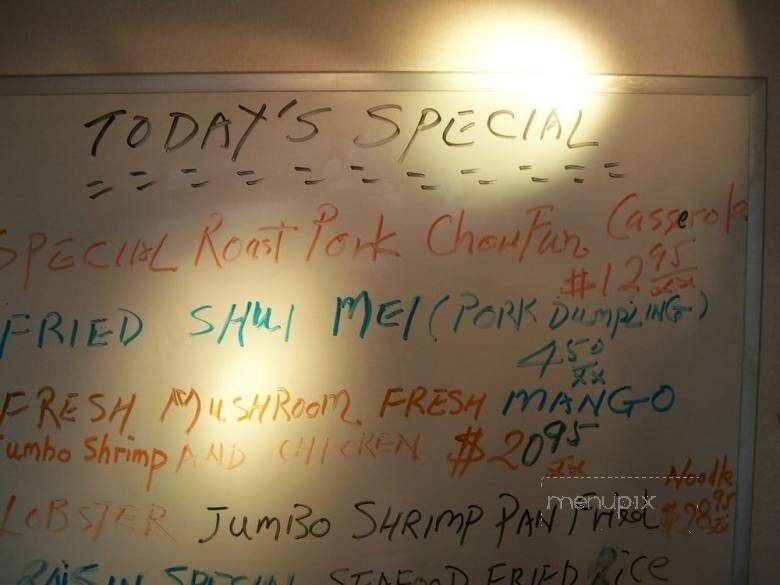 TODAY'S SPECIAL
SPECIAL Roast Pork Chow Fun Casserole
$12 95/xx
FRIED SHUI MEI (PORK DUMPLING)
4 50/xx
FRESH MUSHROOM FRESH MANGO
Jumbo Shrimp AND CHICKEN $20 95/xx
Noodle
LOBSTER JUMBO SHRIMP PAN Fried $28 95/xx
menupix
SPECIAL SEAFOOD FRIED Rice